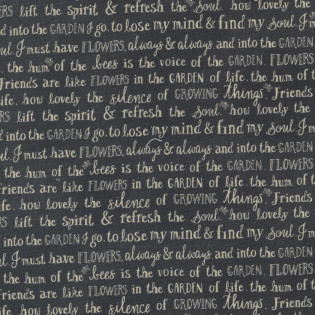 RS lift the Spirit & refresh the Soul. how lovely the
d into the GARDEN I go, to lose my mind & find my Soul. I m
ul. I must have FLOWERS, always & always and into the GARD
. the hum of the bees is the voice of the GARDEN. FLOWERS
Friends are like FLOWERS in the GARDEN of life. the hum of t
ife. how lovely the silence of GROWING Things. Friends
RS lift the Spirit & refresh the Soul. how lovely the
nd into the GARDEN I go, to lose my mind & find my Soul. I m
ul. I must have FLOWERS, always & always and into the GARD
. the hum of the bees is the voice of the GARDEN. FLOWERS
Friends are like FLOWERS in the GARDEN of life. the hum of t
ife. how lovely the silence of GROWING Things. Friends
RS lift the Spirit & refresh the Soul. how lovely the
nd into the GARDEN I go, to lose my mind & find my Soul. I m
ul. I must have FLOWERS, always & always and into the GARD
. the hum of the bees is the voice of the GARDEN. FLOWERS
Friends are like FLOWERS in the GARDEN of life. the hum of t
ife. how lovely the silence of GROWING Things. Friends